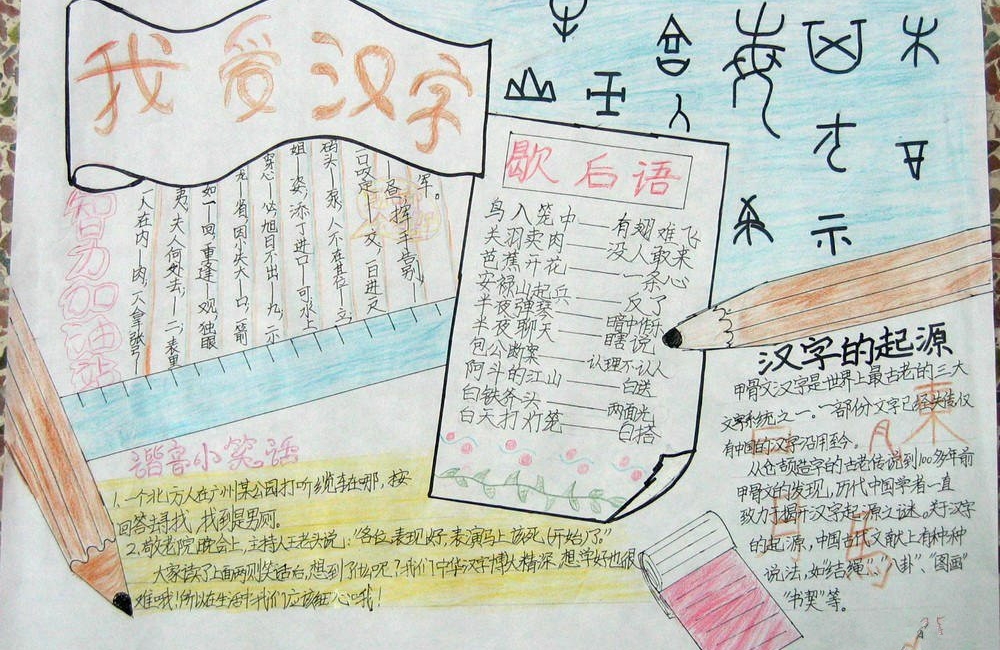 我爱汉字
智力加油站
军。
口咬定—交,一日进文
码头—泵,人不在其位—立,
姐—姿,添丁进口—可,水上
穿心—必,旭日不出—九,二示
龙—省,因小失大—口,箭
如一—回,重逢—观,独眼
夷,夫人何处去—二,表里
一人在内—肉,大拿张弓—
歇后语
鸟入笼中——有翅难飞
关羽卖肉——没人敢来
芭蕉开花——一条心
安禄山起兵——反了
半夜弹琴——暗中作乐
半夜聊天——瞎说
包公断案——认理不认人
阿斗的江山——白送
白铁斧头——两面光
白天打灯笼——白搭
谐音小笑话
1、一个北方人在广州某公园打听缆车在哪,按
回答去寻找,找到是男厕。
2、敬老院晚会上,主持人王老头说:“各位表现好,表演马上该死(开始)了。”
大家读了上面两则笑话后,想到了什么呢?我们中华汉字博大精深,想学好也很
难哦!所以在生活中我们应该细心哦!
汉字的起源
甲骨文汉字是世界上最古老的三大
文字系统之一。一部份文字已经失传仅
有中国的汉字沿用至今。
从仓颉造字的古老传说到100多年前
甲骨文的发现,历代中国学者一直
致力于揭开汉字起源之谜。关于汉字
的起源,中国古代文献上有种种
说法,如“结绳”、“八卦”、“图画”
“书契”等。